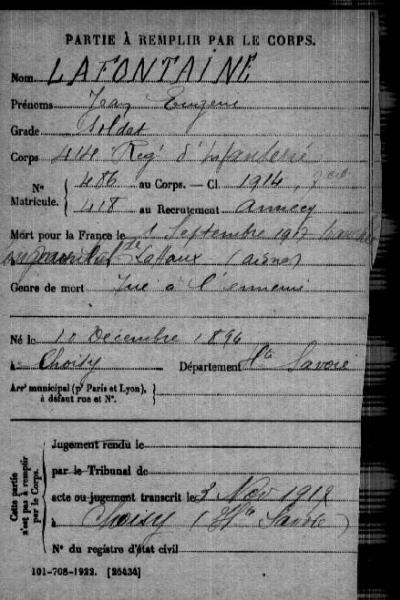 PARTIE À REMPLIR PAR LE CORPS.
Nom LAFONTAINE
Prénoms Jean Eugène
Grade Soldat
Corps 414 Reg d'Infanterie
N° Matricule. { 486 au Corps. — Cl. 1914
418 au Recrutement Annecy
Mort pour la France le 1 Septembre 1917
de Laffaux (Aisne)
Genre de mort Tué à l'ennemi
Né le 10 Décembre 1894
à Choisy Département Hte Savoie
Arrt municipal (pr Paris et Lyon),
à défaut rue et N°.
Cette partie n'est pas à remplir par le Corps.
Jugement rendu le
par le Tribunal de
acte ou jugement transcrit le 3 Nov 1917
à Choisy (Hte Savoie)
N° du registre d'état civil
101-708-1922. [26434]